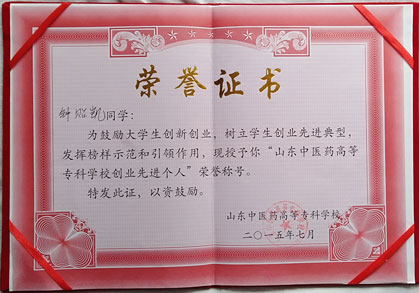 荣誉证书
钟昭凯同学：
为鼓励大学生创新创业，树立学生创业先进典型，
发挥榜样示范和引领作用，现授予你“山东中医药高等
专科学校创业先进个人”荣誉称号。
特发此证，以资鼓励。
山东中医药高等专科学校
二〇一五年七月